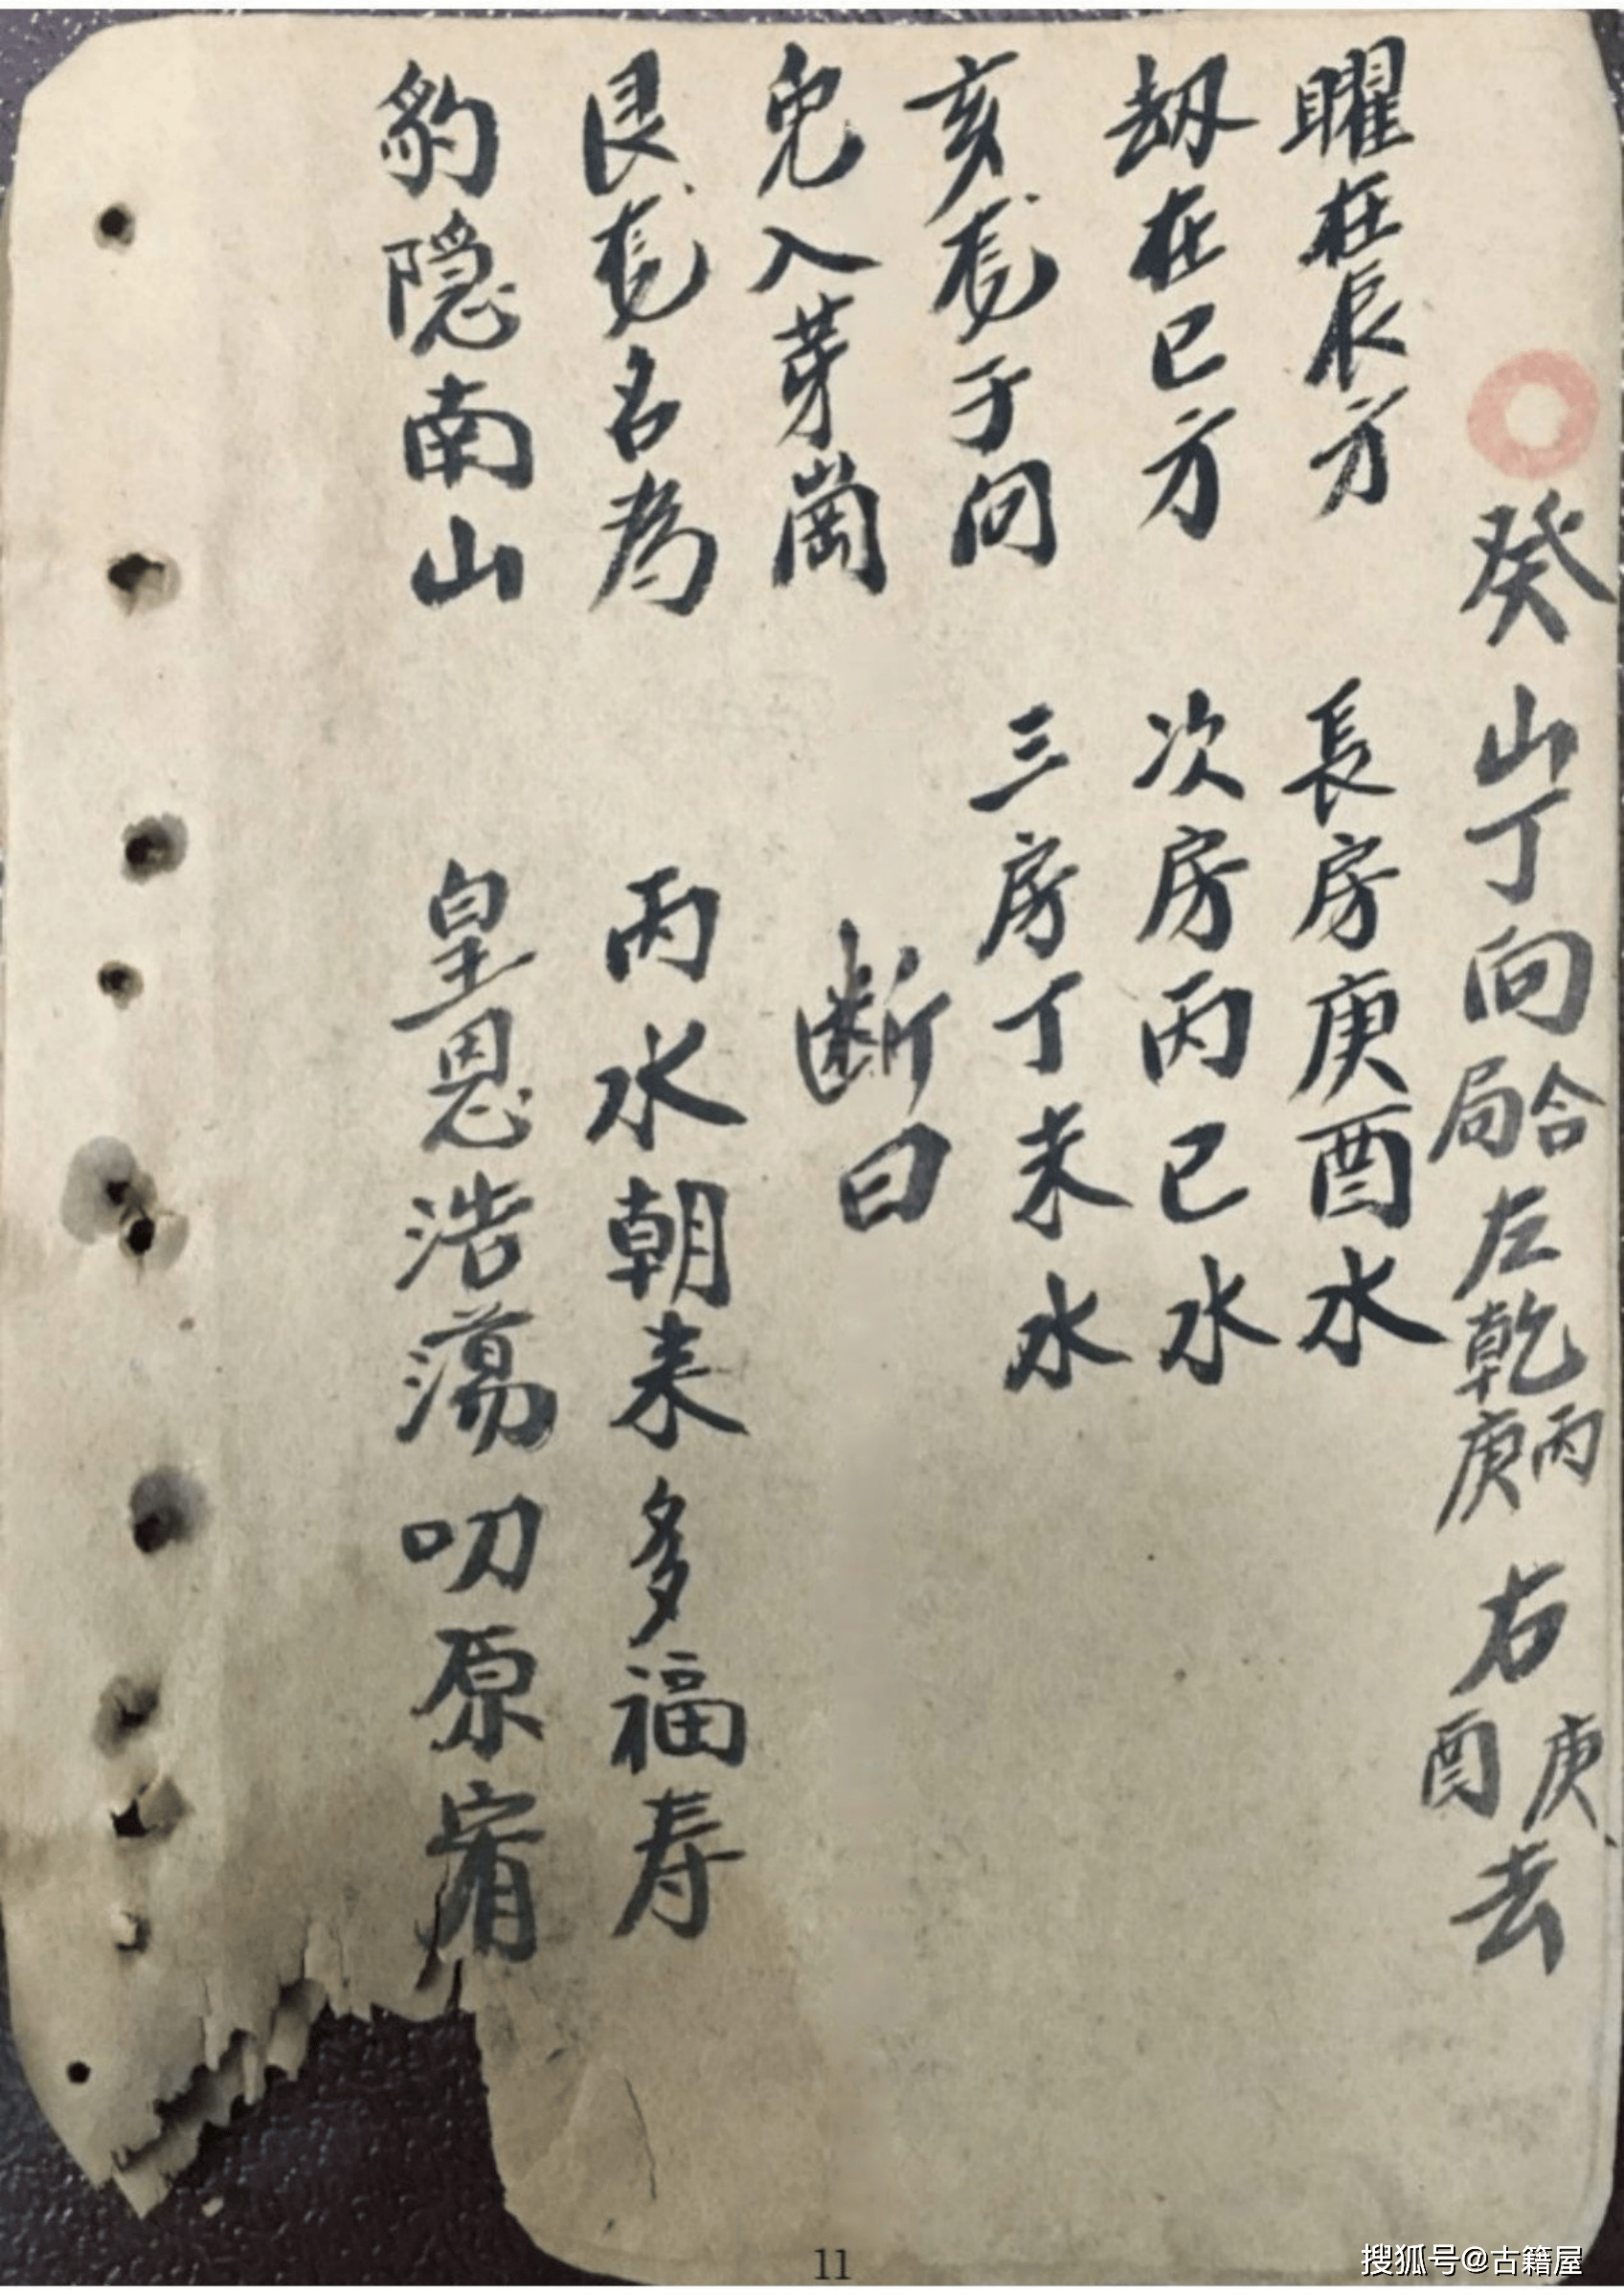 癸山丁向合局左乾丙庚右庚酉去
曜在辰方 長房庚酉水
刼在巳方 次房丙巳水
亥龍于向 三房丁未水
兔入芽崗 断曰
艮龍名為 丙水朝来多福寿
豹隐南山 皇恩浩蕩叨原
11
搜狐号@古籍屋